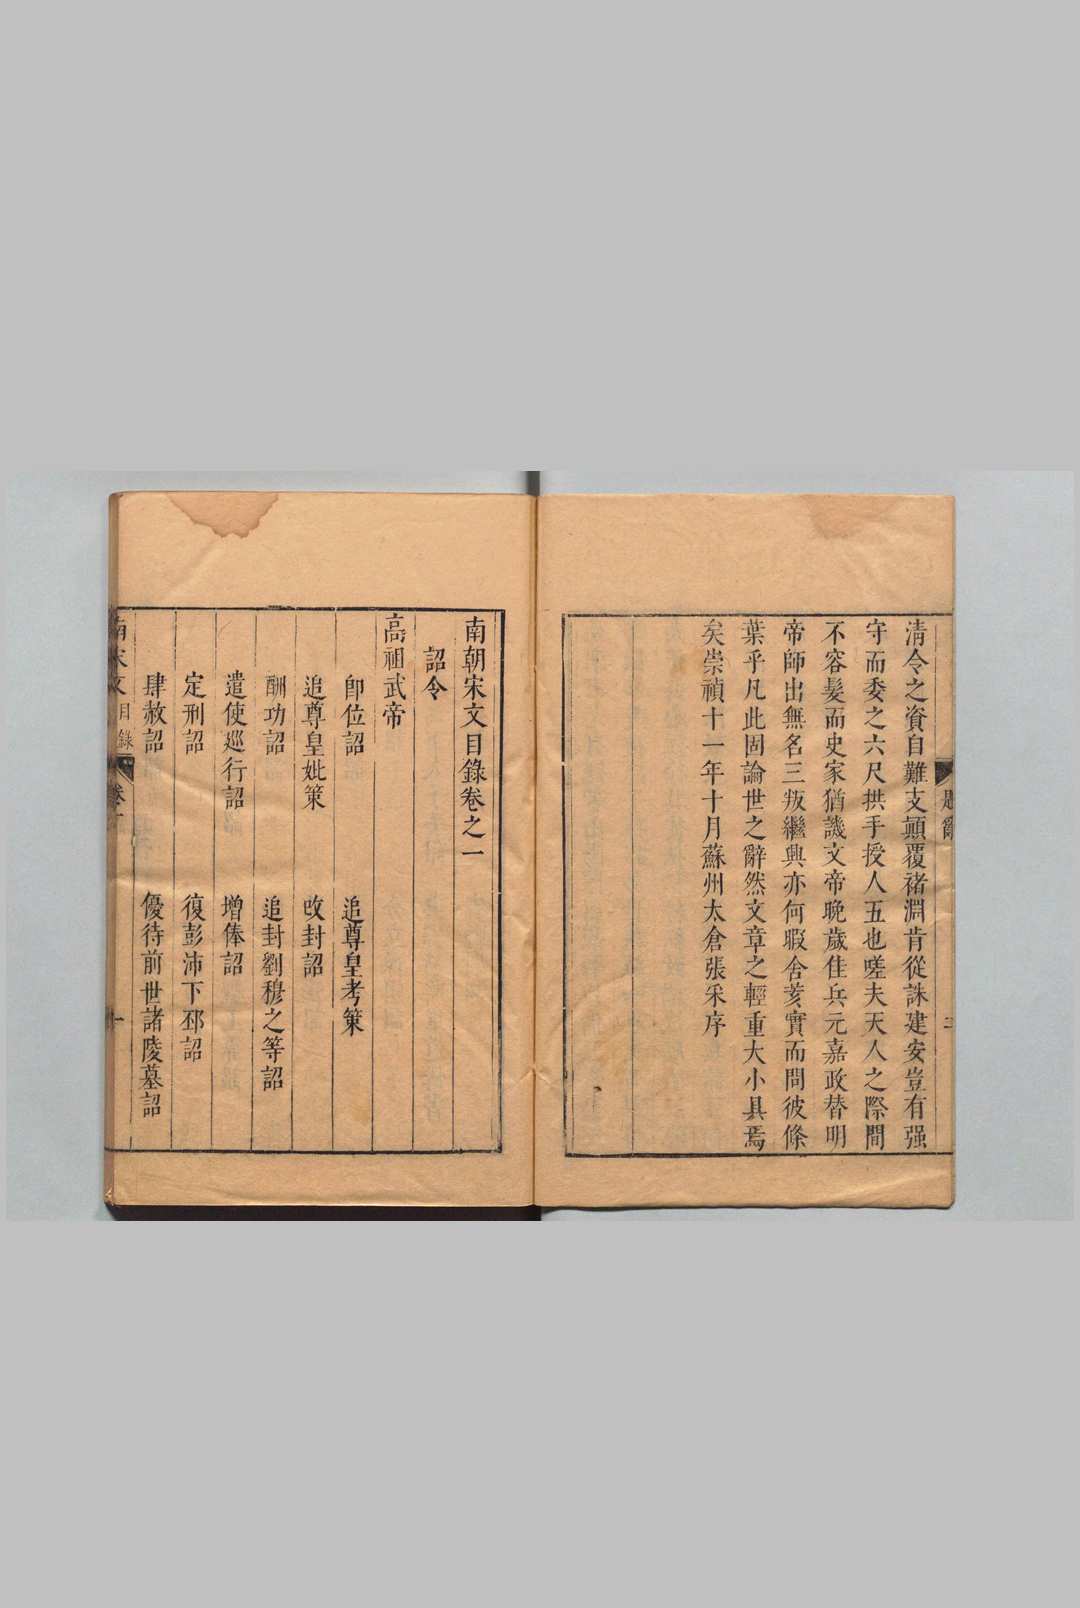 清令之資自難支顛覆褚淵肯從誅建安豈有强
守而委之六尺拱手授人五也嗟夫天人之際間
不容髮而史家猶譏文帝晚歲佳兵元嘉政替明
帝師出無名三叛繼興亦何暇舍亥實而問彼條
葉乎凡此固論世之辭然文章之輕重大小具焉
矣崇禎十一年十月蘇州太倉張采序
南朝宋文目錄卷之一
詔令
高祖武帝
卽位詔 追尊皇考策
追尊皇妣策 改封詔
酬功詔 追封劉穆之等詔
遣使巡行詔 增俸詔
定刑詔 復彭沛下邳詔
肆赦詔 優待前世諸陵墓詔
南宋文 目錄 卷一 一